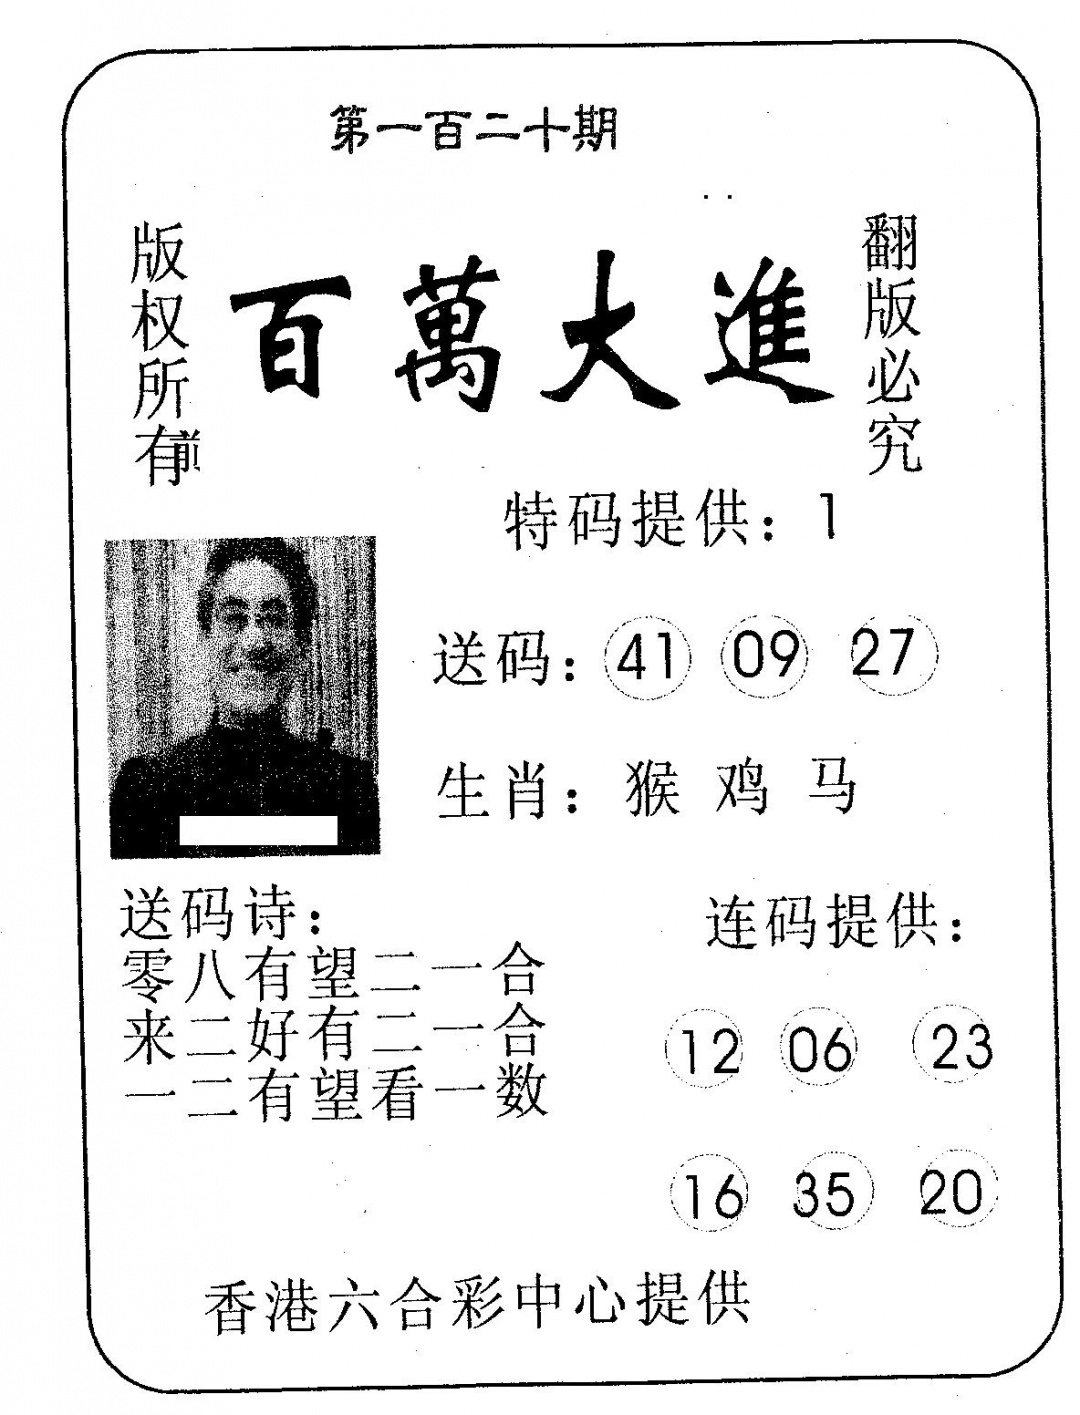 第一百二十期
版权所有
百萬大進
翻版必究
特码提供：1
送码：41 09 27
生肖：猴 鸡 马
送码诗：
零八有望二一合
来二好有二一合
一二有望看一数
连码提供：
12 06 23
16 35 20
香港六合彩中心提供